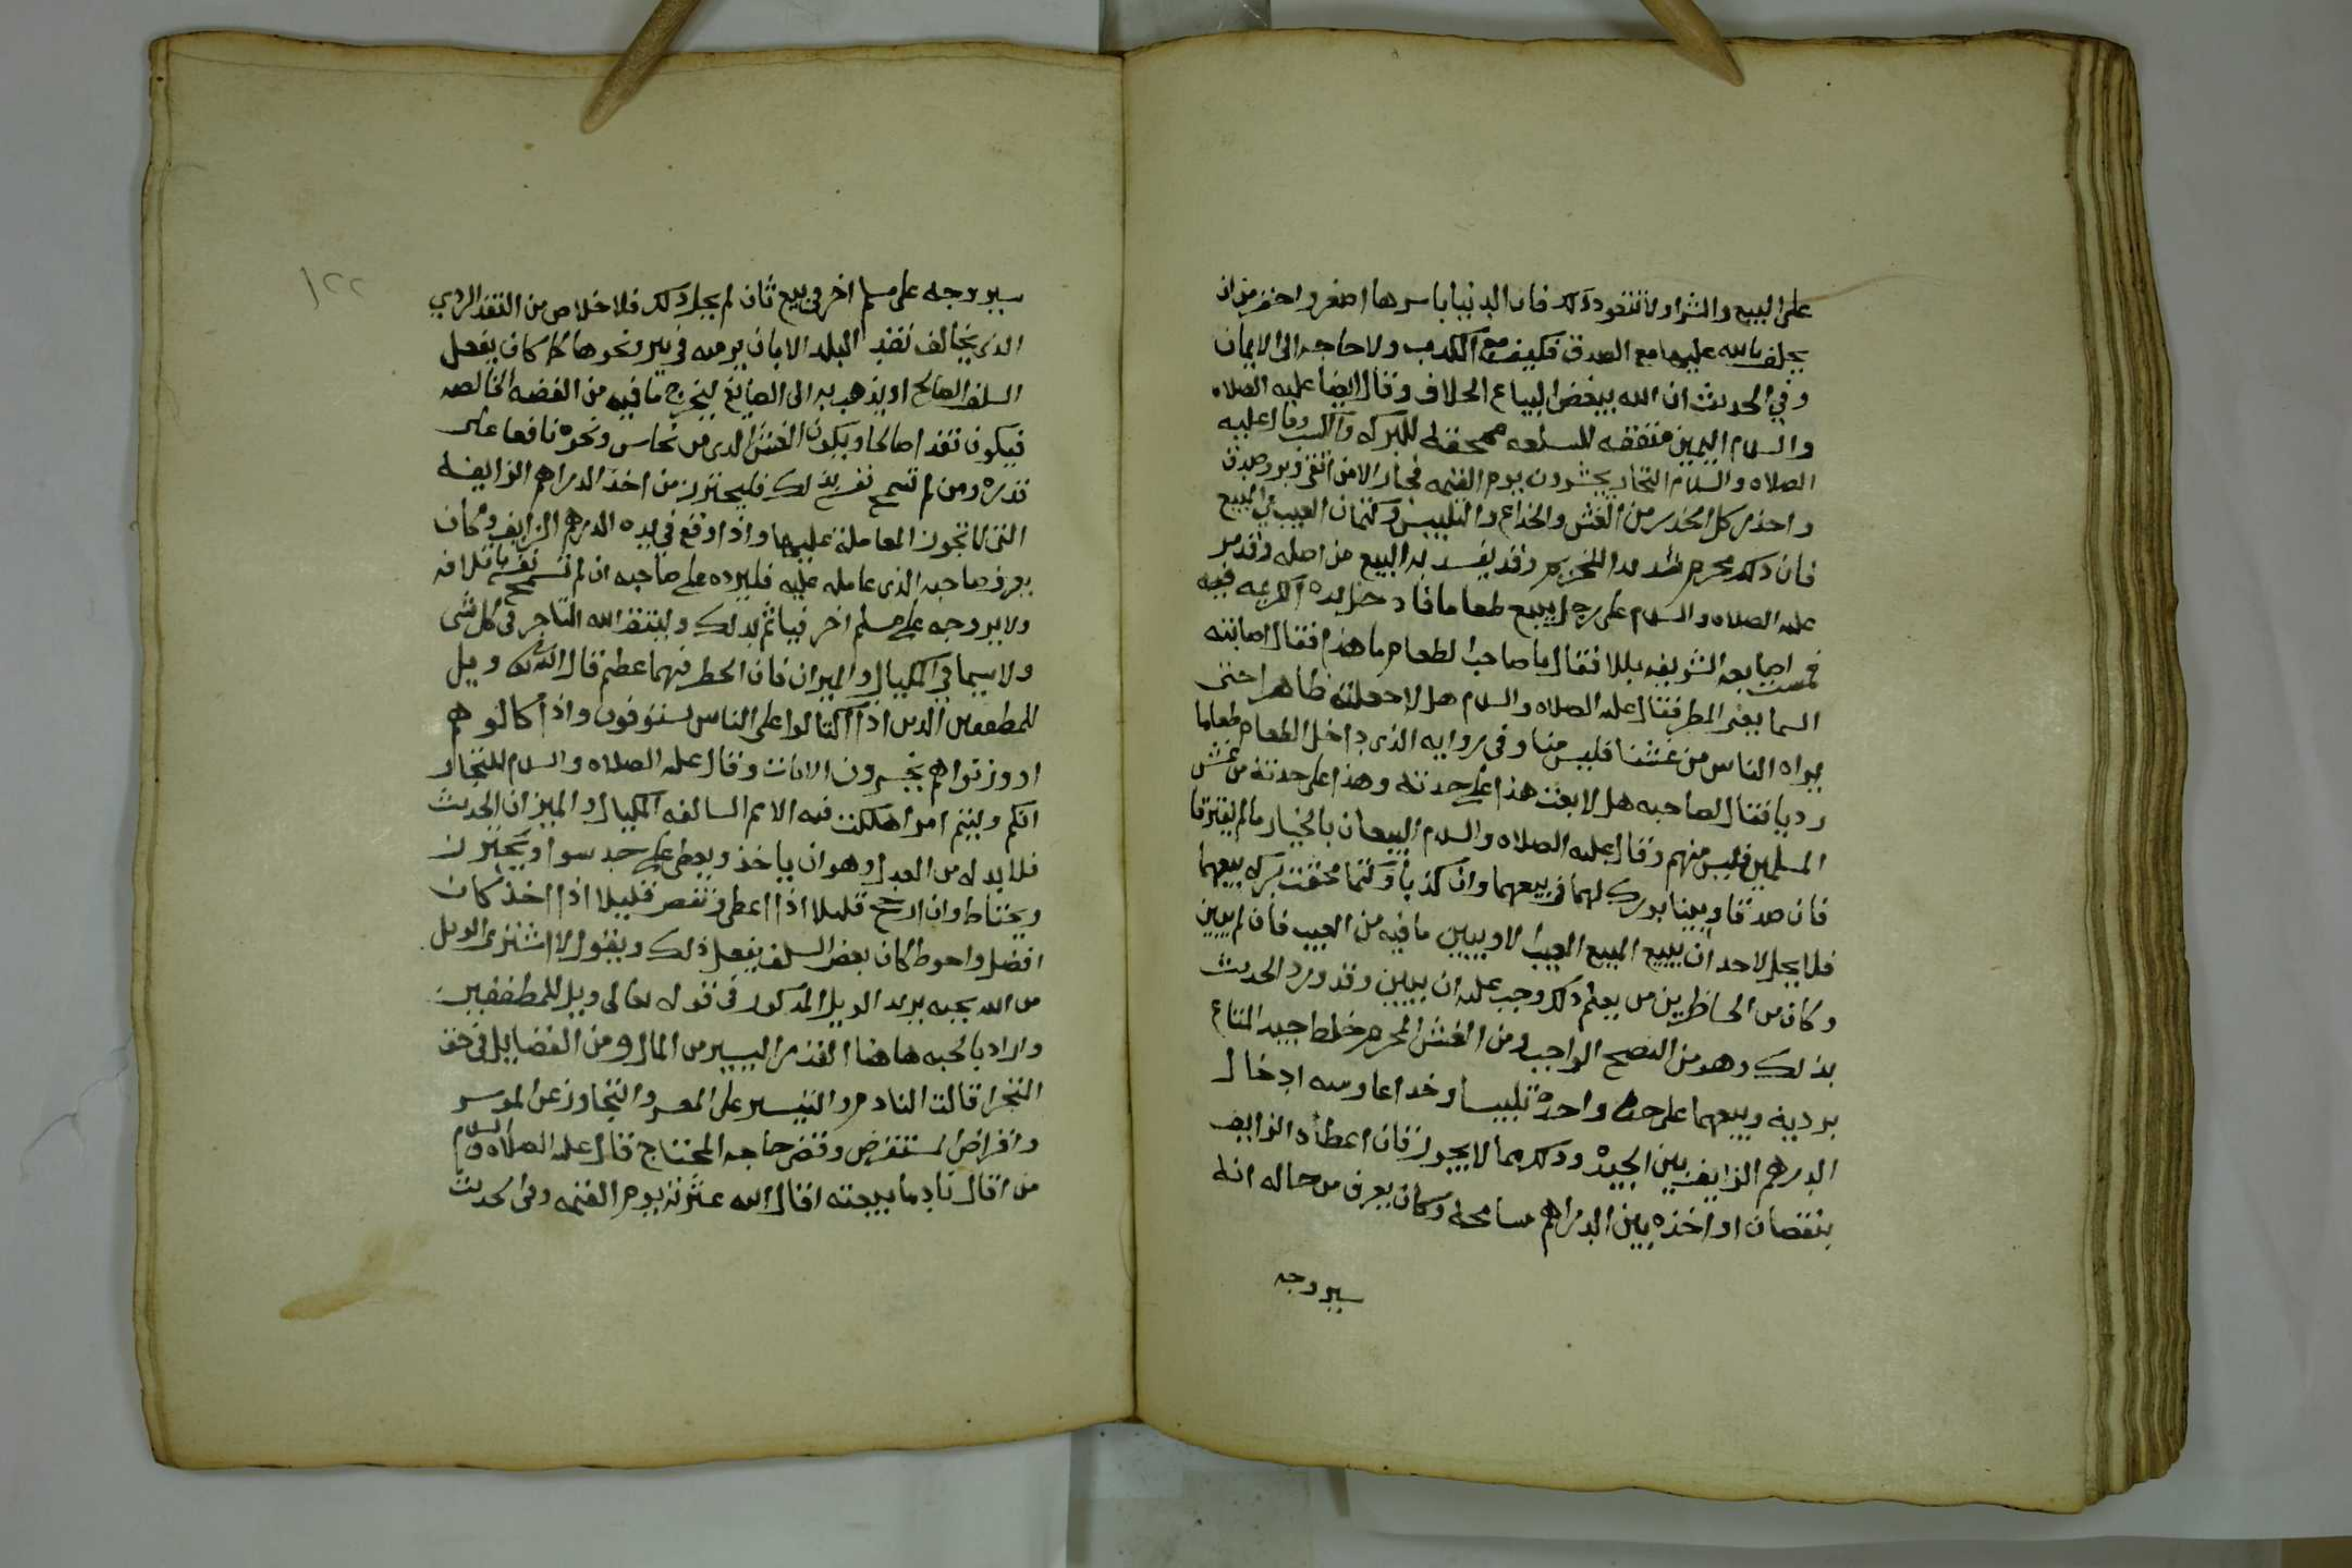 على البيع والشرا ولا تتعود ذلك فان الدنيا باسرها اصغر واحقر من ان
يحلف بالله عليها مع الصدق فكيف مع الكذب ولا حاجه الى الايمان
وفي الحديث ان الله يبغض البياع الحلاف وقال ايضا عليه الصلاه
والسلام اليمين منفقه للسلعه ممحقة للبركه والكسب وقال عليه
الصلاه والسلام التجار يحشرون يوم القيمه فجار الا من اتقى وبر وصدق
واحذر كل الحذر من الغش والخداع والتلبيس وكتمان العيب في المبيع
فان ذلك محرم شديد التحريم وقد يفسد به البيع من اصله وقد مر
عليه الصلاه والسلام على رجل يبيع طعاما فادخل يده الكريمه فيه
فمست اصابعه الشريفه بللا فقال ما صاحب الطعام ما هذا فقال اصابته
السما يعنى المطر فقال عليه الصلاه والسلام هل لا جعلته ظاهرا حتى
يراه الناس من غشنا فليس منا وفى روايه الذى داخل الطعام طعاما
رديا فقال لصاحبه هل لا بعت هذا على حدته وهذا على حدته من غش
المسلمين فليس منهم وقال عليه الصلاه والسلام البيعان بالخيار ما لم يفترقا
فان صدقا وبينا بورك لهما في بيعهما وان كذبا وكتما محقت بركه بيعهما
فلا يحل لاحد ان يبيع المبيع المعيب الا ويبين ما فيه من العيب فان لم يبين
وكان من الحاظرين من يعلم ذلك وجب عليه ان يبين وقد ورد الحديث
بذلك وهو من النصح الواجب ومن الغش المحرم خلط جيد المتاع
برديه وبيعهما على حدة واحدة تلبيسا وخداعا ومنه ادخال
الدرهم الزايف بين الجيده وذلك مما لا يجوز فان اعطاه الزايف
بنقصان او اخذه بين الدراهم مسامحة وكان يعرف من حاله انه
سيروجه
١٢٢
سيروجه على مسلم اخر في بيع ثان لم يحل ذلك فلا خلاص من النقد الردي
الذى يخالف نقد البلد الا بان يرميه في بير ونحوها كما كان يفعل
السلف الصالح او يذهب به الى الصايغ ليخرج ما فيه من الفضه الخالصه
فيكون نقدا صالحا ويكون الغش الذى من نحاس ونحوه نافعا على
قدره ومن لم تسمح نفسه بذلك فليحترز من اخذ الدراهم الزايفه
التى لا تجوز المعاملة عليها واذا وقع في يده الدرهم الزايف وكان
يعرف صاحبه الذى عامله عليه فليرده على صاحبه ان لم تسمح نفسه باتلافه
ولا يروجه على مسلم اخر فياثم بذلك وليتق الله التاجر في كل شى
ولا سيما في المكيال والميزان فان الخطر فيهما عظيم قال الله تعالى ويل
للمطففين الذين اذا اكتالوا على الناس يستوفون واذا كالوهم
او وزنوهم يخسرون الايات وقال عليه الصلاه والسلام للتجار
انكم وليتم امرا هلكت فيه الامم السالفه المكيال والميزان الحديث
فلا بد له من العدل وهو ان ياخذ ويعطى على حد سوا ويتحرز
ويحتاط وان ارجح قليلا اذا اعطى ونقص قليلا اذا اخذ كان
افضل واحوط كان بعض السلف يفعل ذلك ويقول لا اشترى الويل
من الله بحبه يريد الويل المذكور في قوله تعالى ويل للمطففين
واراد بالحبه هاهنا القدر اليسير من المال ومن الفضايل في حق
التجر اقالت النادم والتيسير على المعسر والتجاوز عن الموسر
واقراض المستقرض وقضى حاجه المحتاج قال عليه الصلاه والسلام
من اقال نادما بيعته اقال الله عثرته يوم القيمه وفي الحديث